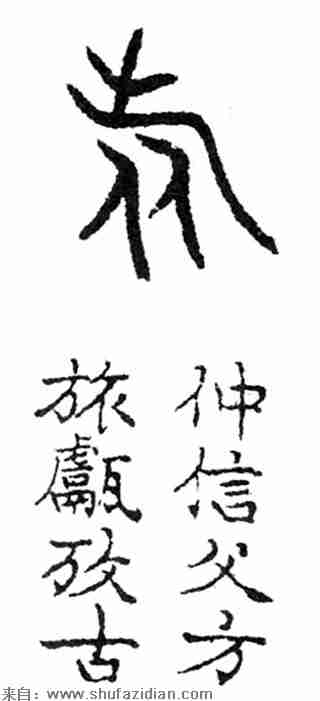 旅
仲信父方
旅甗攷古
来自：www.shufazidian.com